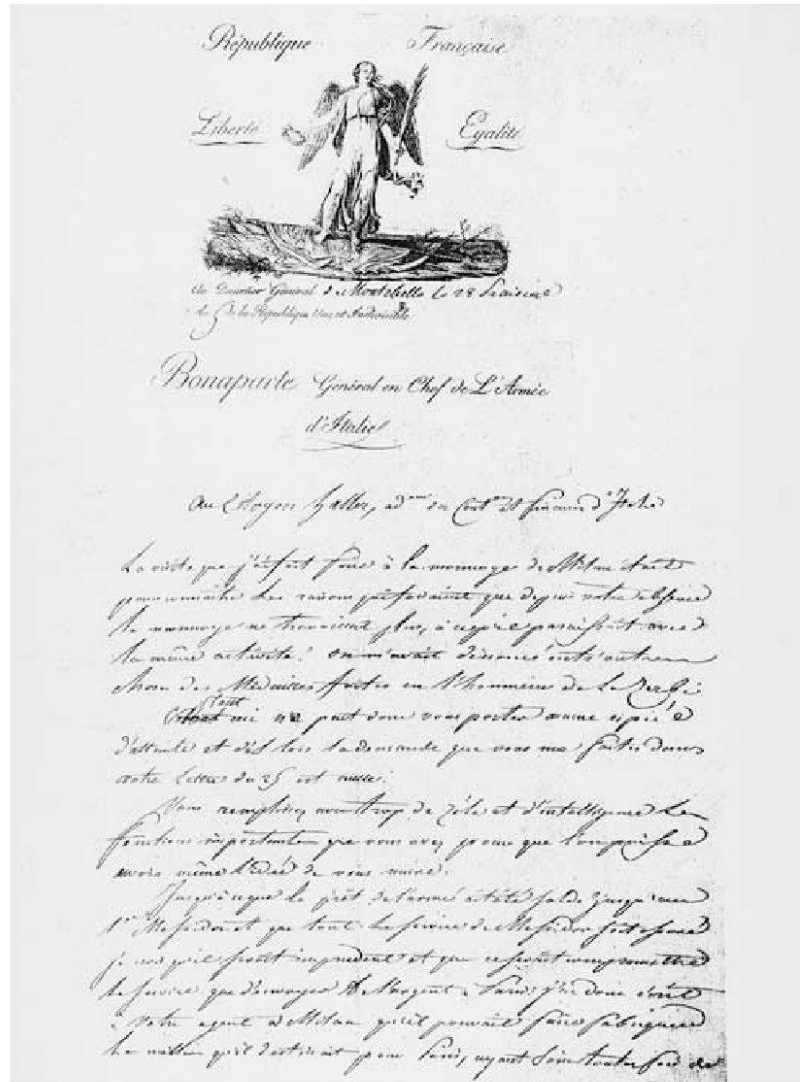 République Française
Liberté Egalité
Au Quartier Général de Montebello le 28 Prairial
An 5 de la République Une et Indivisible
Bonaparte Général en Chef de L'Armée
d'Italie
Au Citoyen Haller, adm. des Cont. et finances d'Italie
La visite que j'ai fait faire à la monnaye de Milan était
pour connaître les raisons qui faisaient que depuis votre absence
la monnaye ne travaillait plus, à ce qu'il paraissait avec
la même activité: on m'avait dénoncé entr'autres
choses des Médailles faites en l'honneur de
Tout ceci ne peut donc vous porter aucune espèce
d'atteinte et dès lors la demande que vous me faites dans
votre Lettre du 25 est nulle.
Vous remplissez avec trop de zèle et d'intelligence les
fonctions importantes que vous avez pour que l'on puisse
avoir même l'idée de vous nuire.
Jusqu'à ce que le prêt de l'armée ait été soldé jusqu'au
1er Messidor et que tout le service de Messidor soit assuré
je vois qu'il serait imprudent et que ce serait compromettre
le service que d'envoyer de l'argent à Paris. j'ai donc écrit
à votre agent à Milan qu'il pouvait faire fabriquer
le million qu'il destinait pour Paris, ayant soin toutefois de